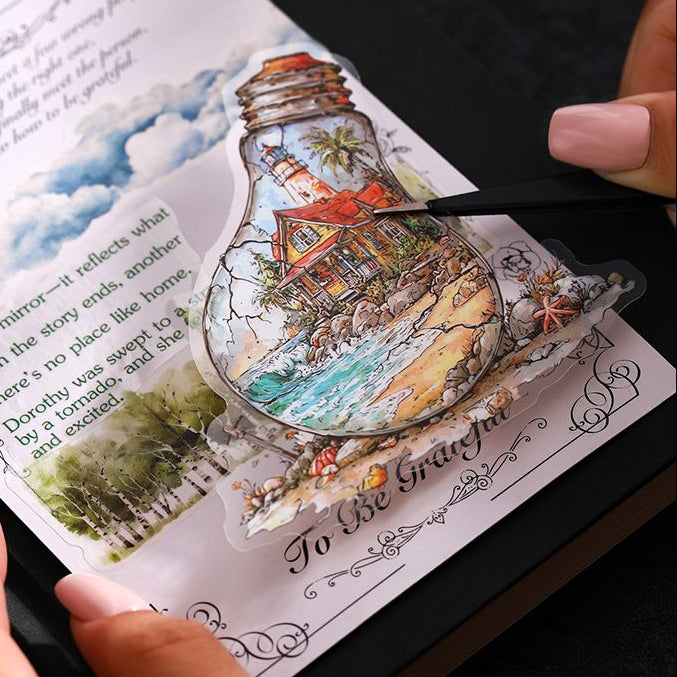 few wrong people
g the right one.
finally meet the person.
how to be grateful.
mirror—it reflects what
the story ends, another
there's no place like home,
Dorothy was swept to a
by a tornado, and she
and excited.
To Be Grateful